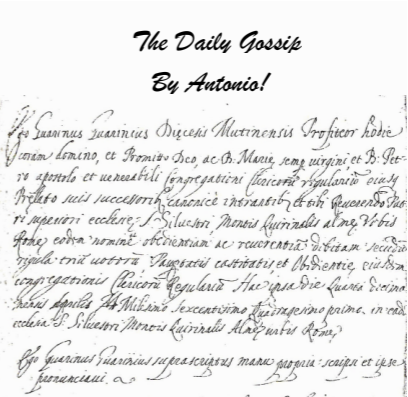 The Daily Gossip
By Antonio!
Ego Guarinus Guarinius Diecesis Mutinensis Profiteor hodie
coram domino, et Promitto Deo, ac B. Marie semp virgini et B. Pet-
ro apostolo et venerabili Congregationi Clericorū regulariū eiusq
Prelato suis successorib canonice intrantib et tibi Reverendo Pat-
ri superiori ecclesie S. Silvestri Montis Quirinalis alme Urbis
Rome eodem nomine obedientiam ac reverentiā debitam secundū
regula triū votorū Paupertatis castitatis et Obedientie, eiusdem
congregationis Clericorū Regulariū Hac ipsa die Quarta decima
mensis aprilis Millesimo sexcentisimo Quadragesimo primo in eadē
ecclesia S. Silvestri Montis Quirinalis Alme urbis Rome,
Ego Guarinus Guarinius suprascriptus manu propria scripsi et ipse
pronunciavi.